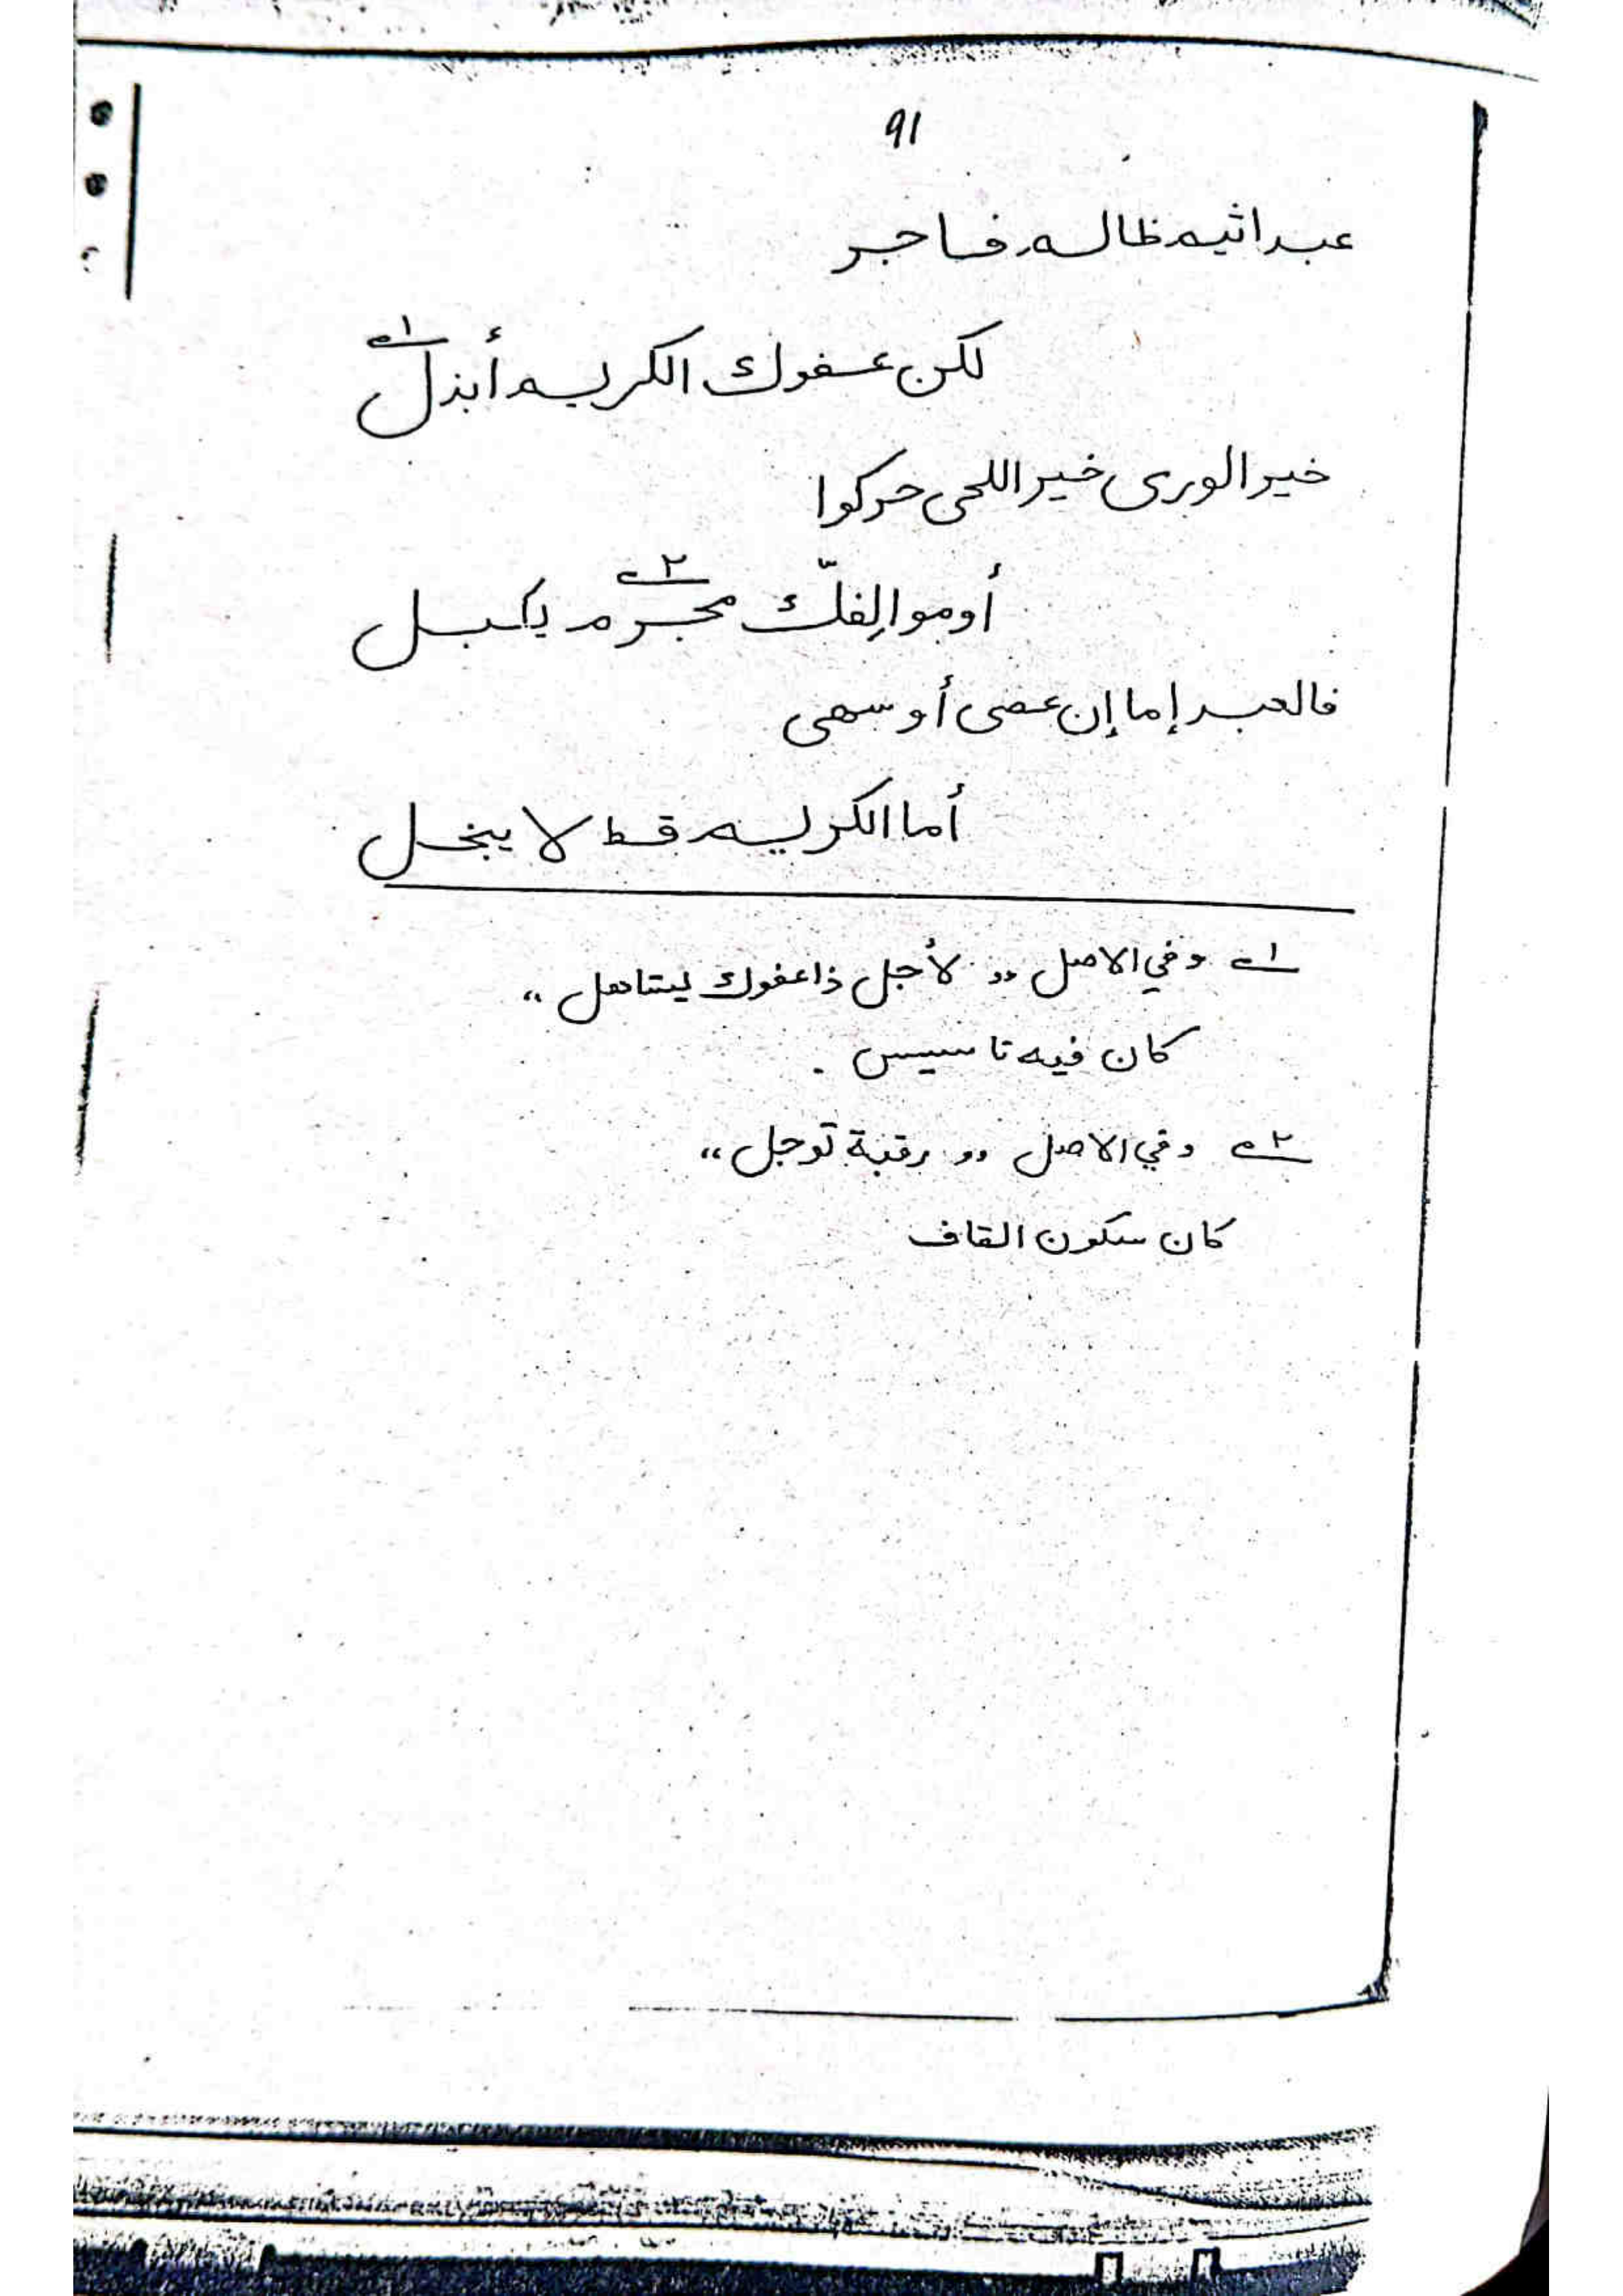 91
عبد اثيم ظالم فاجر
لكن عفوك الكريم أبذل ١
خير الورى خير اللحى حركوا
أوموا لِفكّ مجرم ٢ يكبل
فالعبد إما إن عصى أو سهى
أما الكريم قط لا يبخل
١ وفي الاصل ,, لأجل ذا عفوك ليتاهل ،،
كان فيه تاسيس .
٢ وفي الاصل ,, رقبة توجل ،،
كان سكون القاف